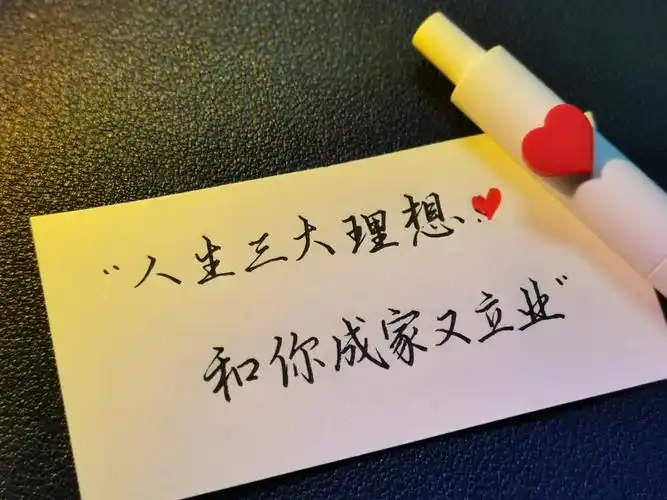 “人生三大理想
和你成家又立业”